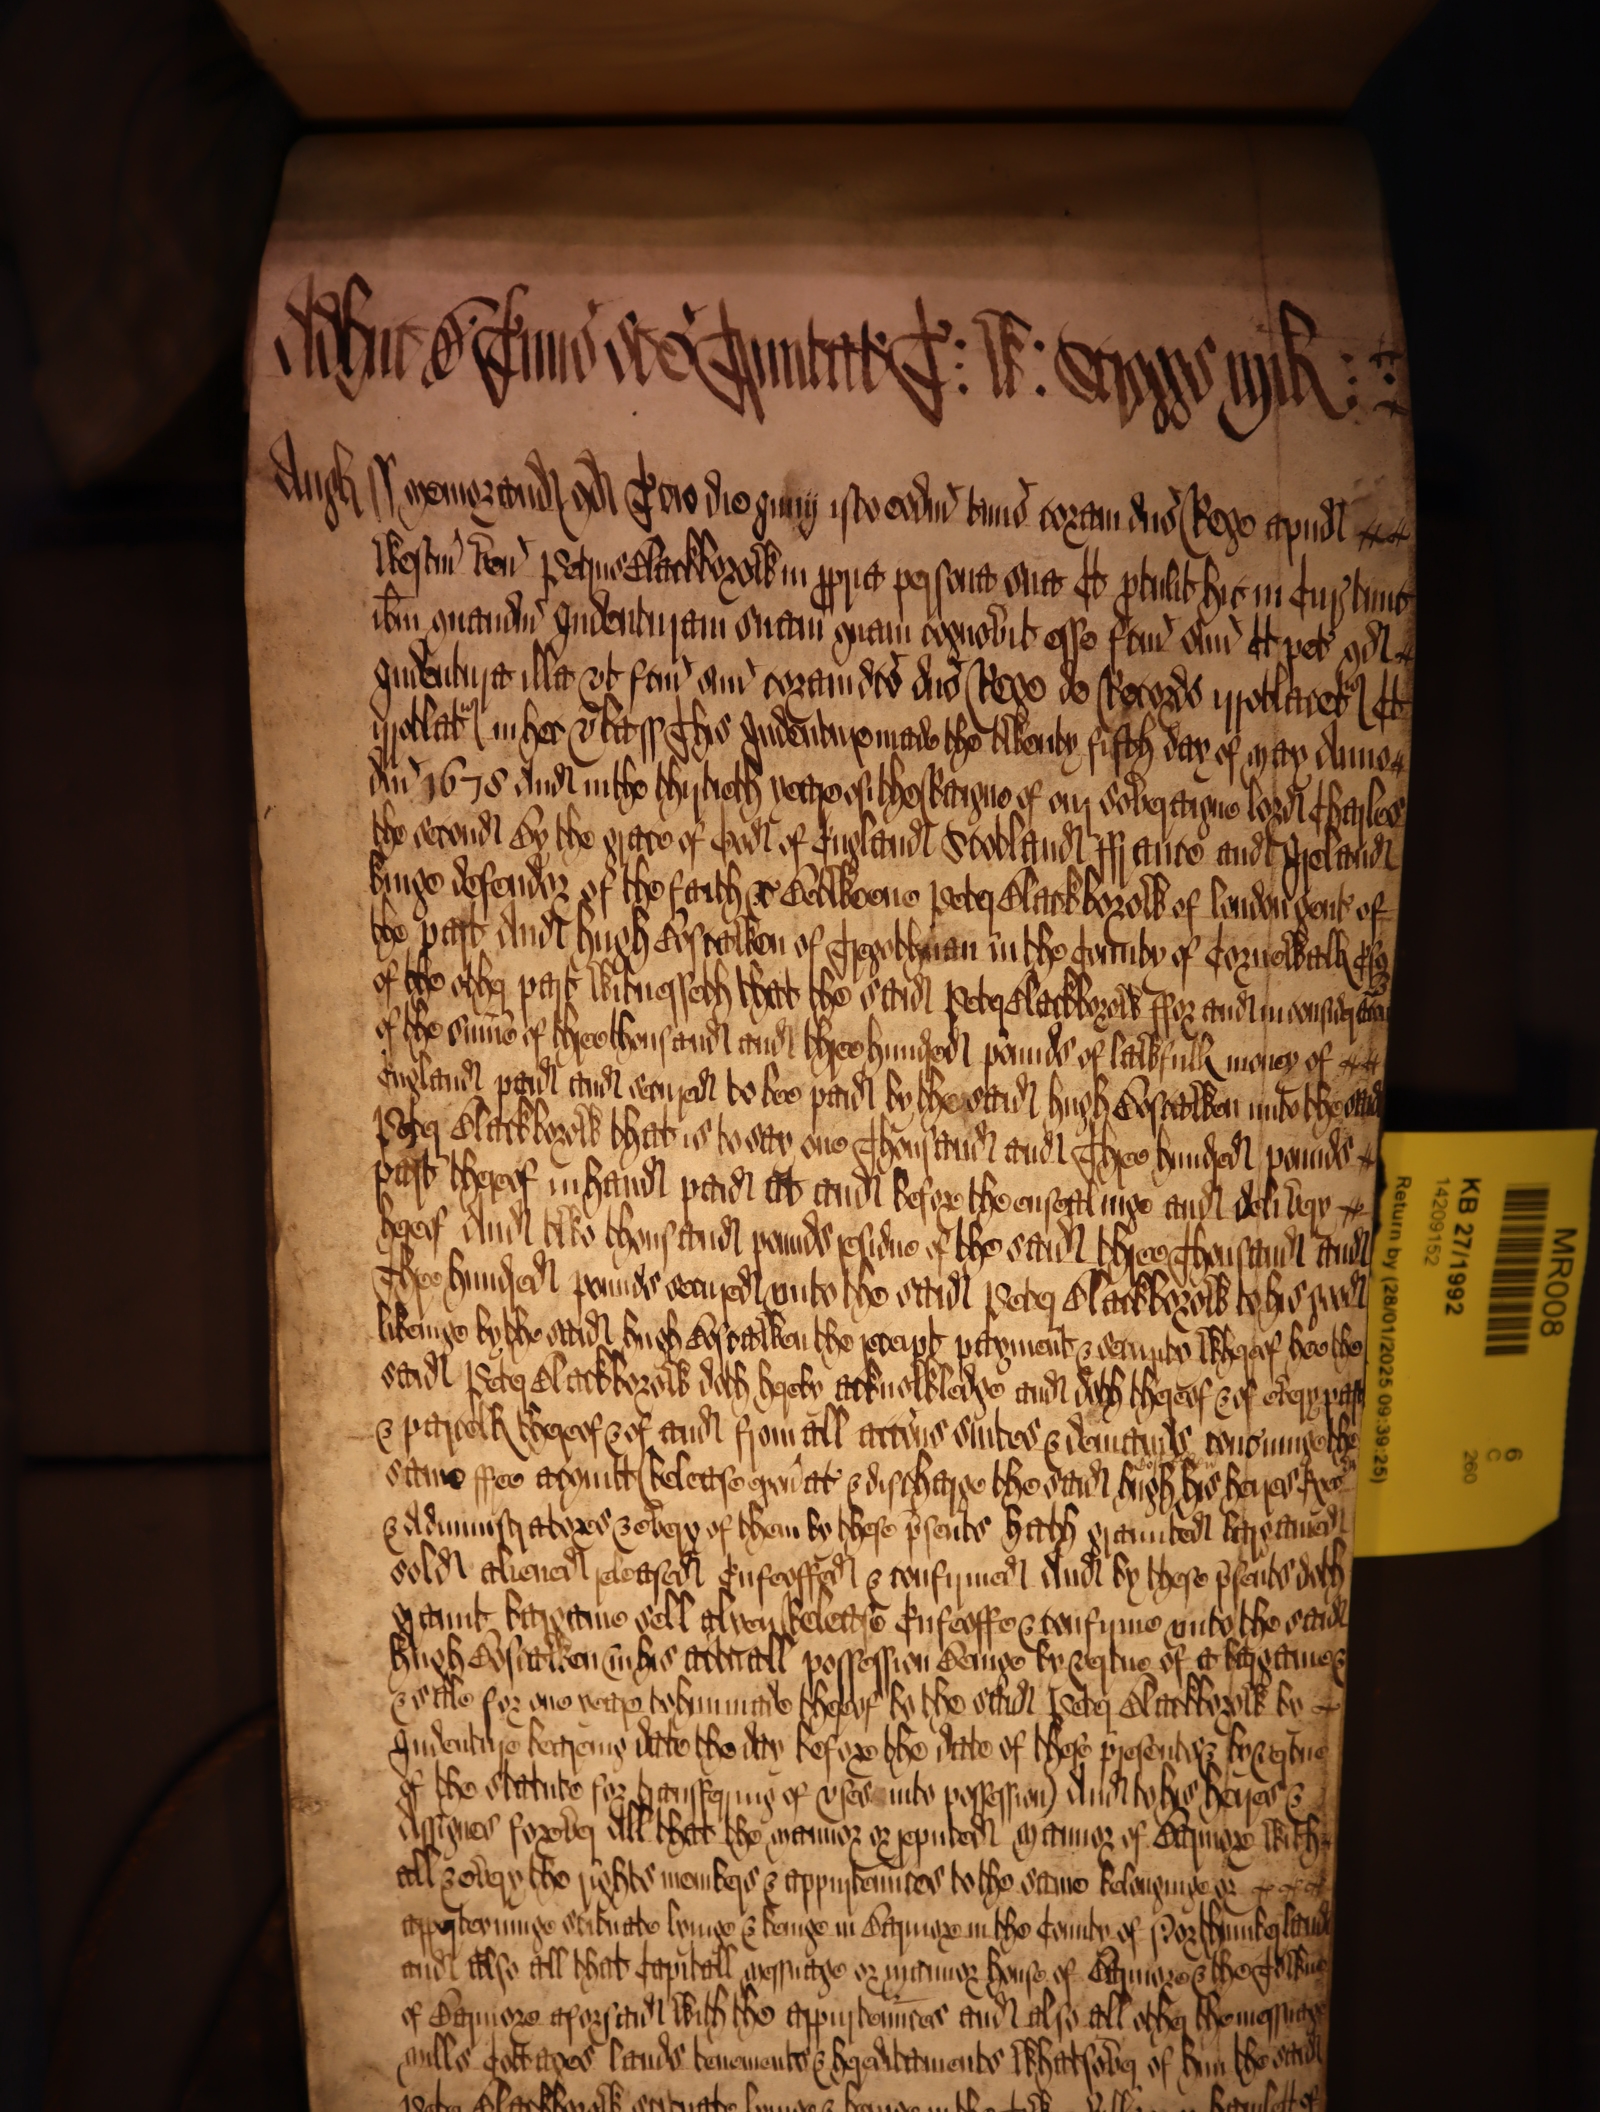 Adhuc de Termino sce Trinitatis
Angl ss memorand qd die Junij isto eodem termino coram dno Rege apud
Westm ven Petrus Blackborow in ppria persona sua Et ptulit hic in Cur tunc
ibm quandm Indenturam suam quam cognovit esse fcm suu et pet qd
Indentura illa ut fcm suu coram dco dno Rege de Recordo irrotlaretr Et
irrotlatr in hec verba ss This Indenture made the twenty fifth day of May Anno
dni 1678 And in the thirtieth yeare of the Raigne of our soveraigne lord Charles
the second By the grace of God of England Scotland ffrance and Ireland
kinge defender of the faith &c Betweene Peter Blackborow of london gent of
the part And hugh Boscawen of Tregothnan in the County of Cornewall Esq
of the other part Witnesseth that the said Peter Blackborow ffor and in consideracon
of the sume of three thousand and three hundred pounds of lawfull money of
England paid and secured to bee paid by the said hugh Boscawen unto the said
Peter Blackborow that is to say one Thousand and Three hundred pounds
part thereof in hand paid at and before the ensealinge and delivery
hereof And two thousand pounds residue of the said three Thousand and
Three hundred pounds secured unto the said Peter Blackborow to his good
likeinge by the said hugh Boscawen the receipt payment & security whereof hee the
said Peter Blackborow doth hereby acknowledge and doth thereof & of every part
& parcell thereof & of and from all accons suites & demands concerninge the
same ffree acquitt Release & discharge the said hugh Boscawen his heires Exrs
& Administratores & every of them by these psents hath graunted bargained
sold aliened released Enfeoffed & confirmed And by these psents doth
graunt bargaine sell alyen Release Enfeoffe & confirme unto the said
hugh Boscawen (in his actuall possession Beinge by vertue of a bargaine
& sale for one yeare to him made thereof by the said Peter Blackborow by
Indenture beareing date the day before the date of these presentes & by vertue
of the statute for transferring of uses into possession) And to his heires &
Assignes forever All that the mannor or reputed Mannor of Barmore with
all & every the rights members & appurtenances to the same belonginge or
apperteininge scituate lyinge & beinge in Barmore in the County of Northumberland
and also all that Capitall messuage or mannor house of Barmore & the Towne
of Barmore aforsaid with the appurtenances and also all other the messuages
mills Cottages lands tenements & hereditaments whatsoever of him the said
Peter Blackborow scituate lyinge & beinge in the
MR008
KB 27/1992
14209152
6
C
260
Return by (28/01/2025 09:39:25)